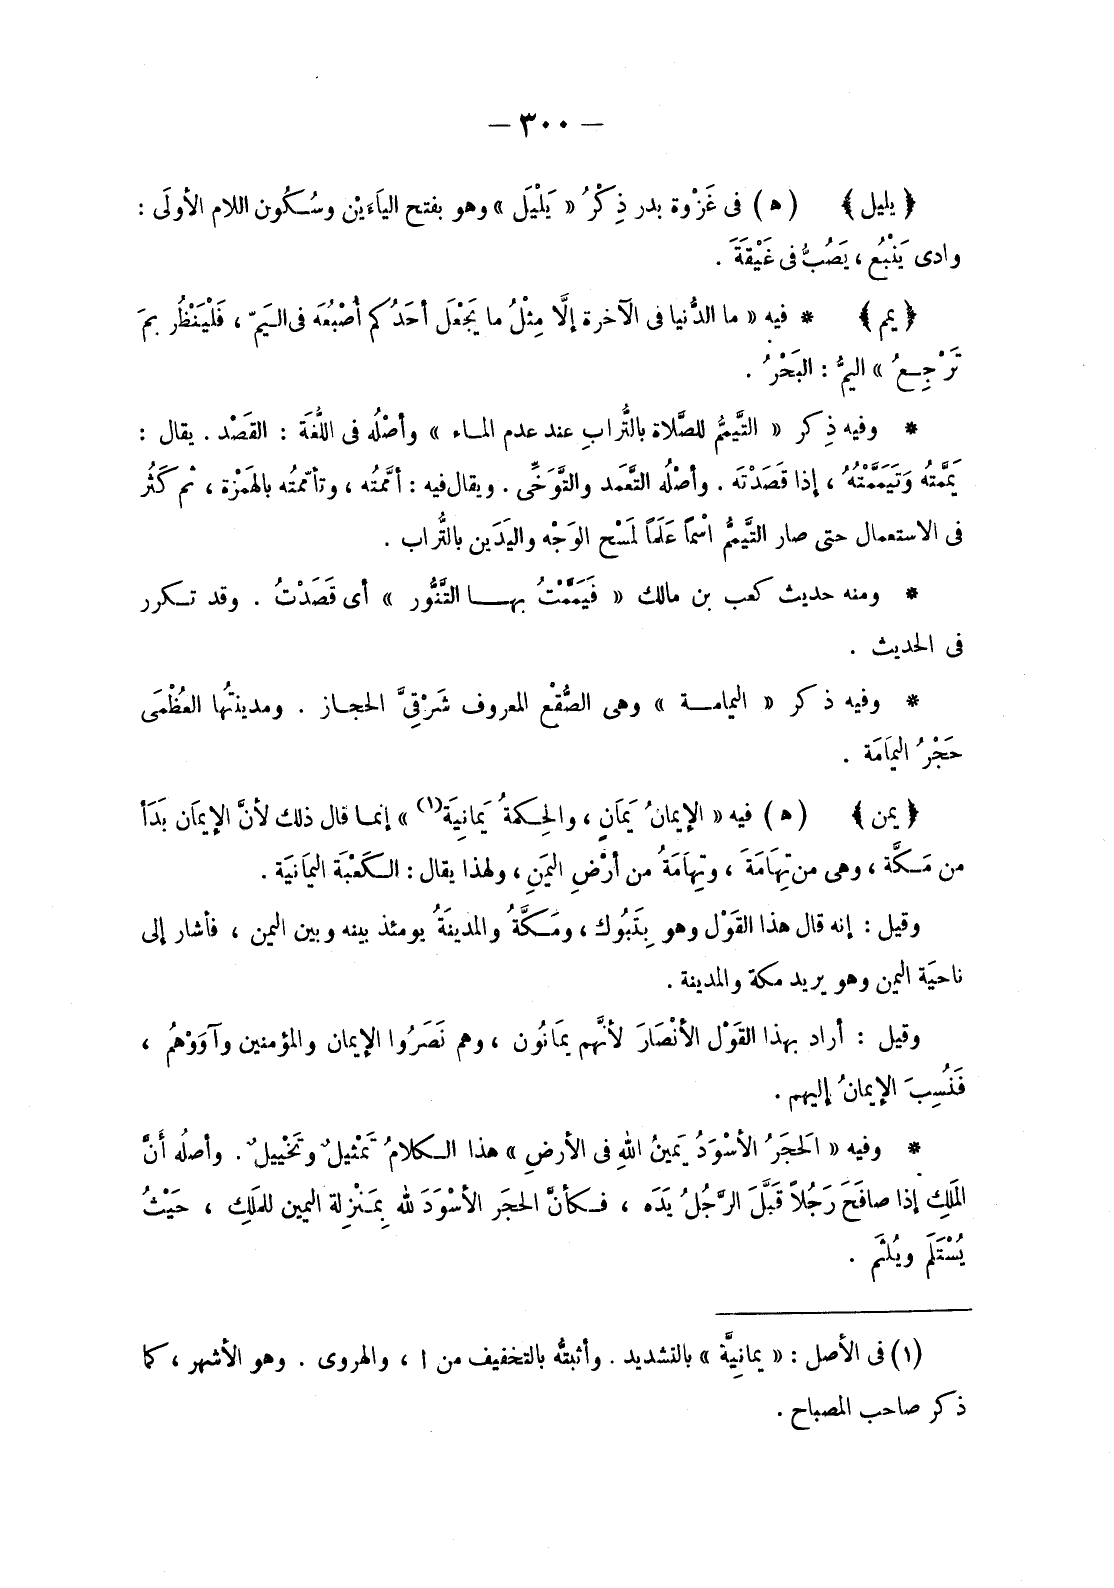 — ٣٠٠ —
﴿ يليل ﴾ ( ه ) فى غَزْوة بدر ذِكْرُ « يَلْيَل » وهو بفتح الياءَيْن وسُكُون اللام الأولَى :
وادى يَنْبُع ، يَصُبُّ فى غَيْقَةَ .
﴿ يم ﴾ * فيه « ما الدُّنيا فى الآخرة إلَّا مِثْلُ ما يَجْعَل أحَدُكم أُصْبُعَه فى اليَمّ ، فَلْيَنْظُر بِمَ
تَرْجِعُ » اليمُّ : البَحْرُ .
* وفيه ذِكر « التَّيمُّم للصَّلاة بالتُّرابِ عند عدم الماء » وأصْلُه فى اللُّغَة : القَصْد . يقال :
يَمَّمْتُه وَتَيَمَّمْتُهُ ، إذا قَصَدْتَه . وأصْلُه التَّعَمد والتَّوَخِّى . ويقال فيه : أمَّمْتُه ، وتأمّمتُه بالهَمْزة ، ثم كَثُر
فى الاستعمال حتى صار التَّيمُّم اسْماً عَلَماً لمَسْح الوَجْه واليَدَين بالتُّراب .
* ومنه حديث كعب بن مالك « فَيَمَّمْتُ بها التَّنُّور » أى قَصَدْتُ . وقد تكرر
فى الحديث .
* وفيه ذكر « اليمامة » وهى الصُّقْع المعروف شَرْقِىَّ الحجاز . ومدينتُها العُظْمَى
حَجْرُ اليمَامَة .
﴿ يمن ﴾ ( ه ) فيه « الإيمانُ يَمَانٍ ، والحِكمةُ يَمانِيَة(١) » إنما قال ذلك لأنَّ الإيمَان بَدَأ
من مَكَّة ، وهى من تِهَامَةَ ، وتِهَامَةُ من أرْضِ اليَمَنِ ، ولهذا يقال : الكَعْبَة اليمَانيَة .
وقيل : إنه قال هذا القَوْل وهو بِتَبُوك ، ومَكَّةُ والمدينَةُ يومئذ بينه وبين اليمن ، فأشار إلى
ناحيَة اليمن وهو يريد مكة والمدينة .
وقيل : أراد بهذا القَوْل الأنْصَارَ لأنَّهم يمَانُون ، وهم نَصَرُوا الإيمان والمؤمنين وآوَوْهُم ،
فَنُسِبَ الإيمانُ إليهم .
* وفيه « الحَجَرُ الأسْوَدُ يَمينُ اللهِ فى الأرضِ » هذا الكلامُ تَمْثيلٌ وتَخْييلٌ . وأصلُه أنَّ
المَلَكِ إذا صافَحَ رَجُلاً قَبَّلَ الرَّجُلُ يَدَه ، فكأنَّ الحجَر الأسْوَدَ لله بِمَنْزِلة اليمين للمَلِكِ ، حَيْثُ
يُسْتَلَم ويُلثَم .
(١) فى الأصل : « يمانِيَّة » بالتشديد . وأثبتُّه بالتخفيف من ا ، والهروى . وهو الأشهر ، كما
ذكر صاحب المصباح .